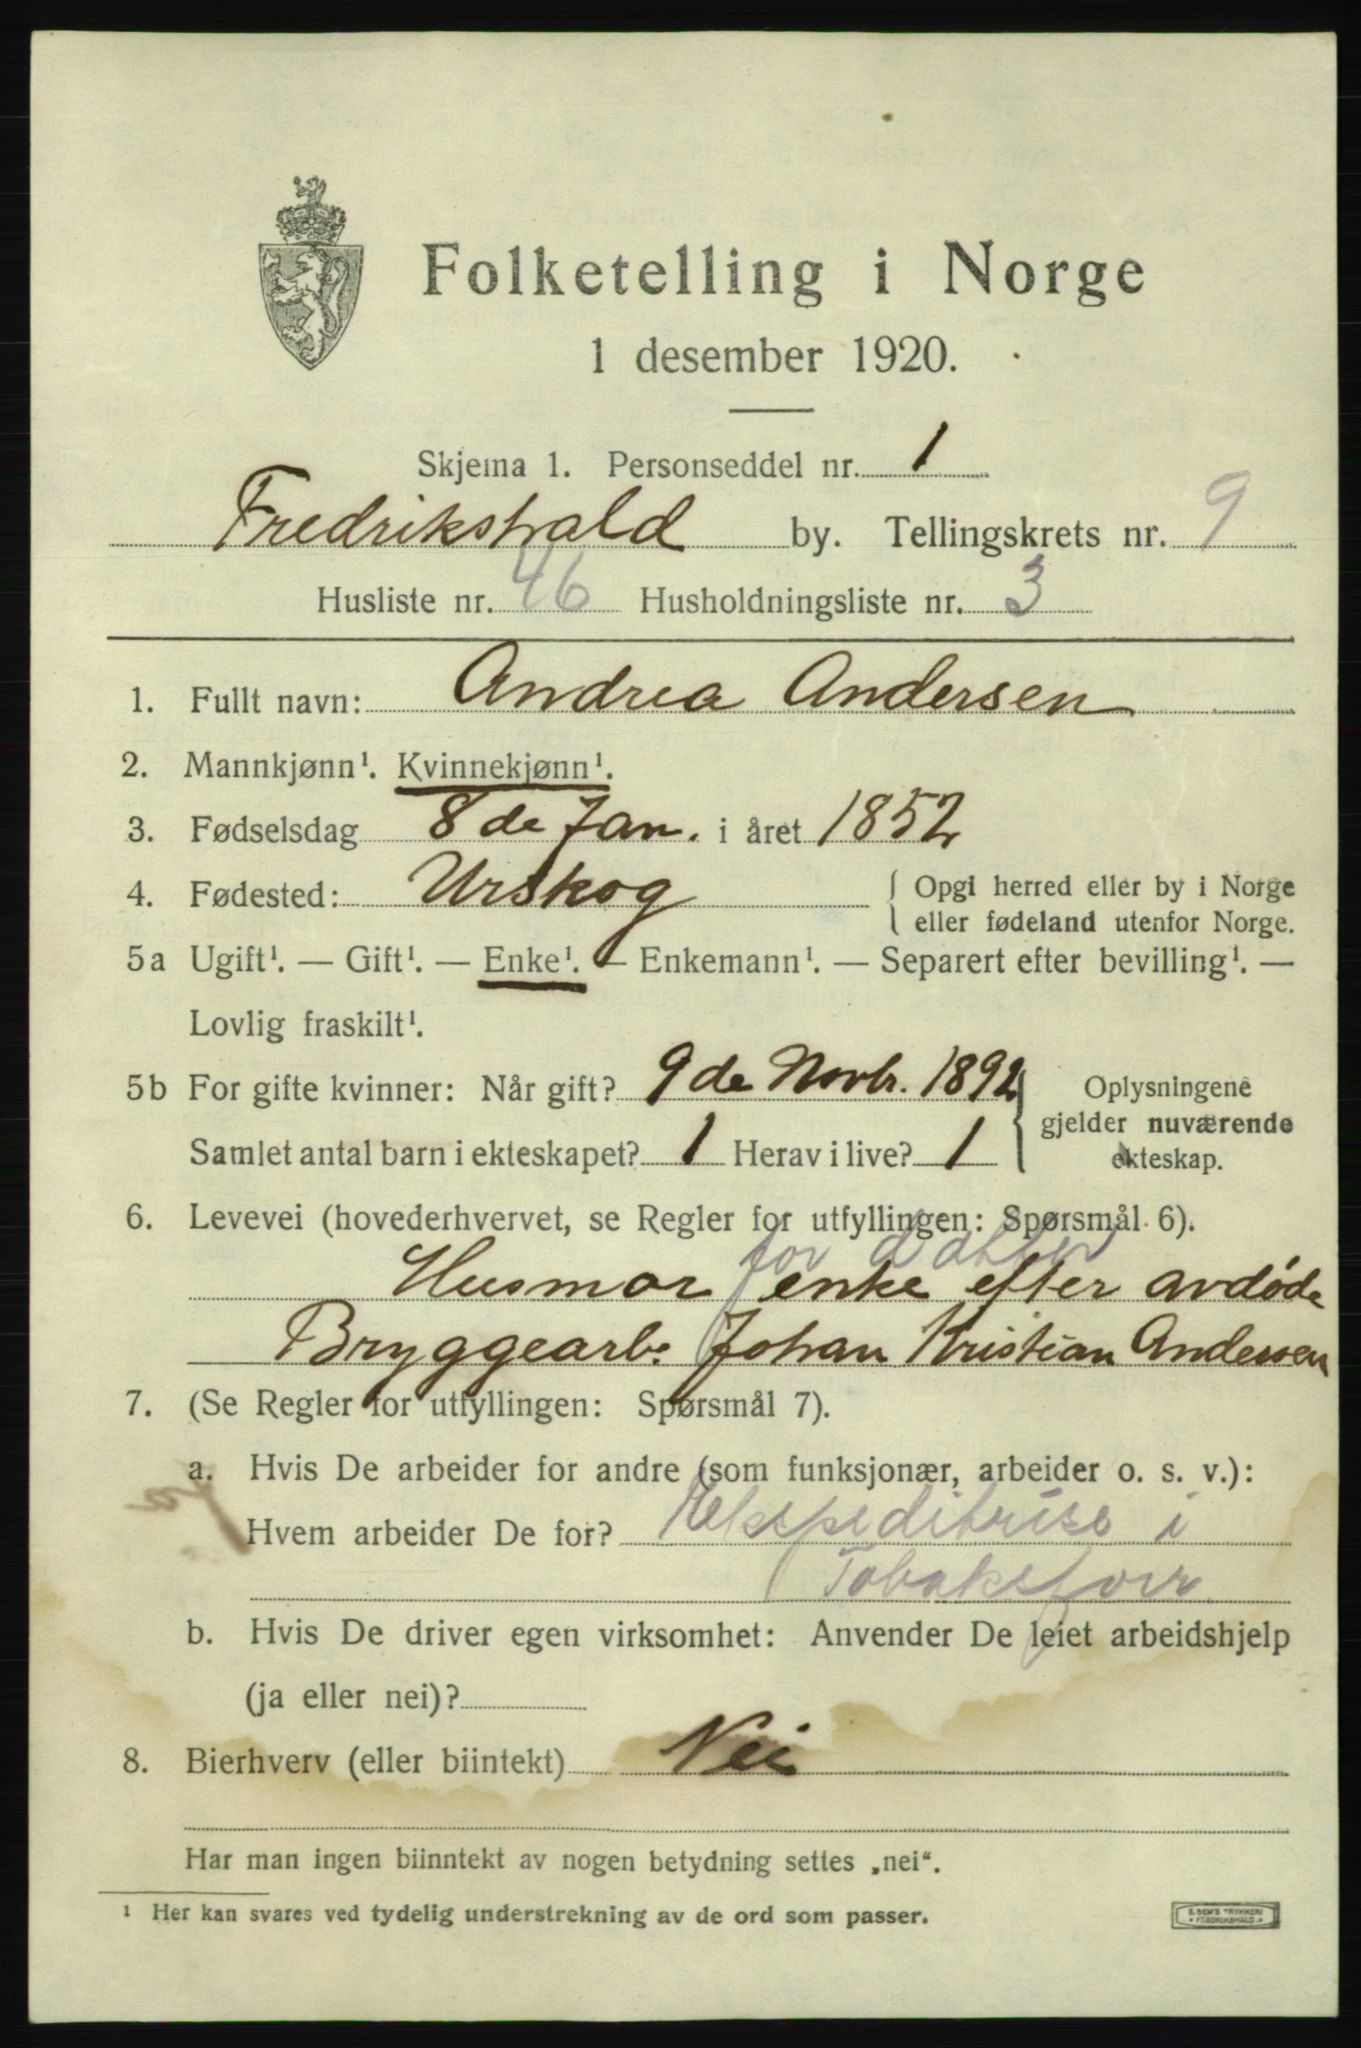 Folketelling i Norge
1 desember 1920.
Skjema 1. Personseddel nr. 1
Fredrikshald by. Tellingskrets nr. 9
Husliste nr. 46 Husholdningsliste nr. 3
1. Fullt navn: Andrea Andersen
2. Mannkjønn¹. Kvinnekjønn¹.
3. Fødselsdag 8 de Jan. i året 1852
4. Fødested: Urskog { Opgi herred eller by i Norge
eller fødeland utenfor Norge.
5a Ugift¹. — Gift¹. — Enke¹. — Enkemann¹. — Separert efter bevilling¹. —
Lovlig fraskilt¹.
5b For gifte kvinner: Når gift? 9 de Novbr. 1892 { Oplysningene
gjelder nuværende
Samlet antal barn i ekteskapet? 1 Herav i live? 1
ekteskap.
6. Levevei (hovederhvervet, se Regler for utfyllingen: Spørsmål 6).
for datter
Husmor enke efter avdøde
Bryggearb. Johan Kristian Andersen
7. (Se Regler for utfyllingen: Spørsmål 7).
a. Hvis De arbeider for andre (som funksjonær, arbeider o. s. v.):
Hvem arbeider De for? Ekspeditrise i
Tobaksforr
b. Hvis De driver egen virksomhet: Anvender De leiet arbeidshjelp
(ja eller nei)?
8. Bierhverv (eller biintekt) Nei
Har man ingen biinntekt av nogen betydning settes „nei“.
¹ Her kan svares ved tydelig understrekning av de ord som passer.
E. SEM'S TRYKKERI
* FREDRIKSHALD *